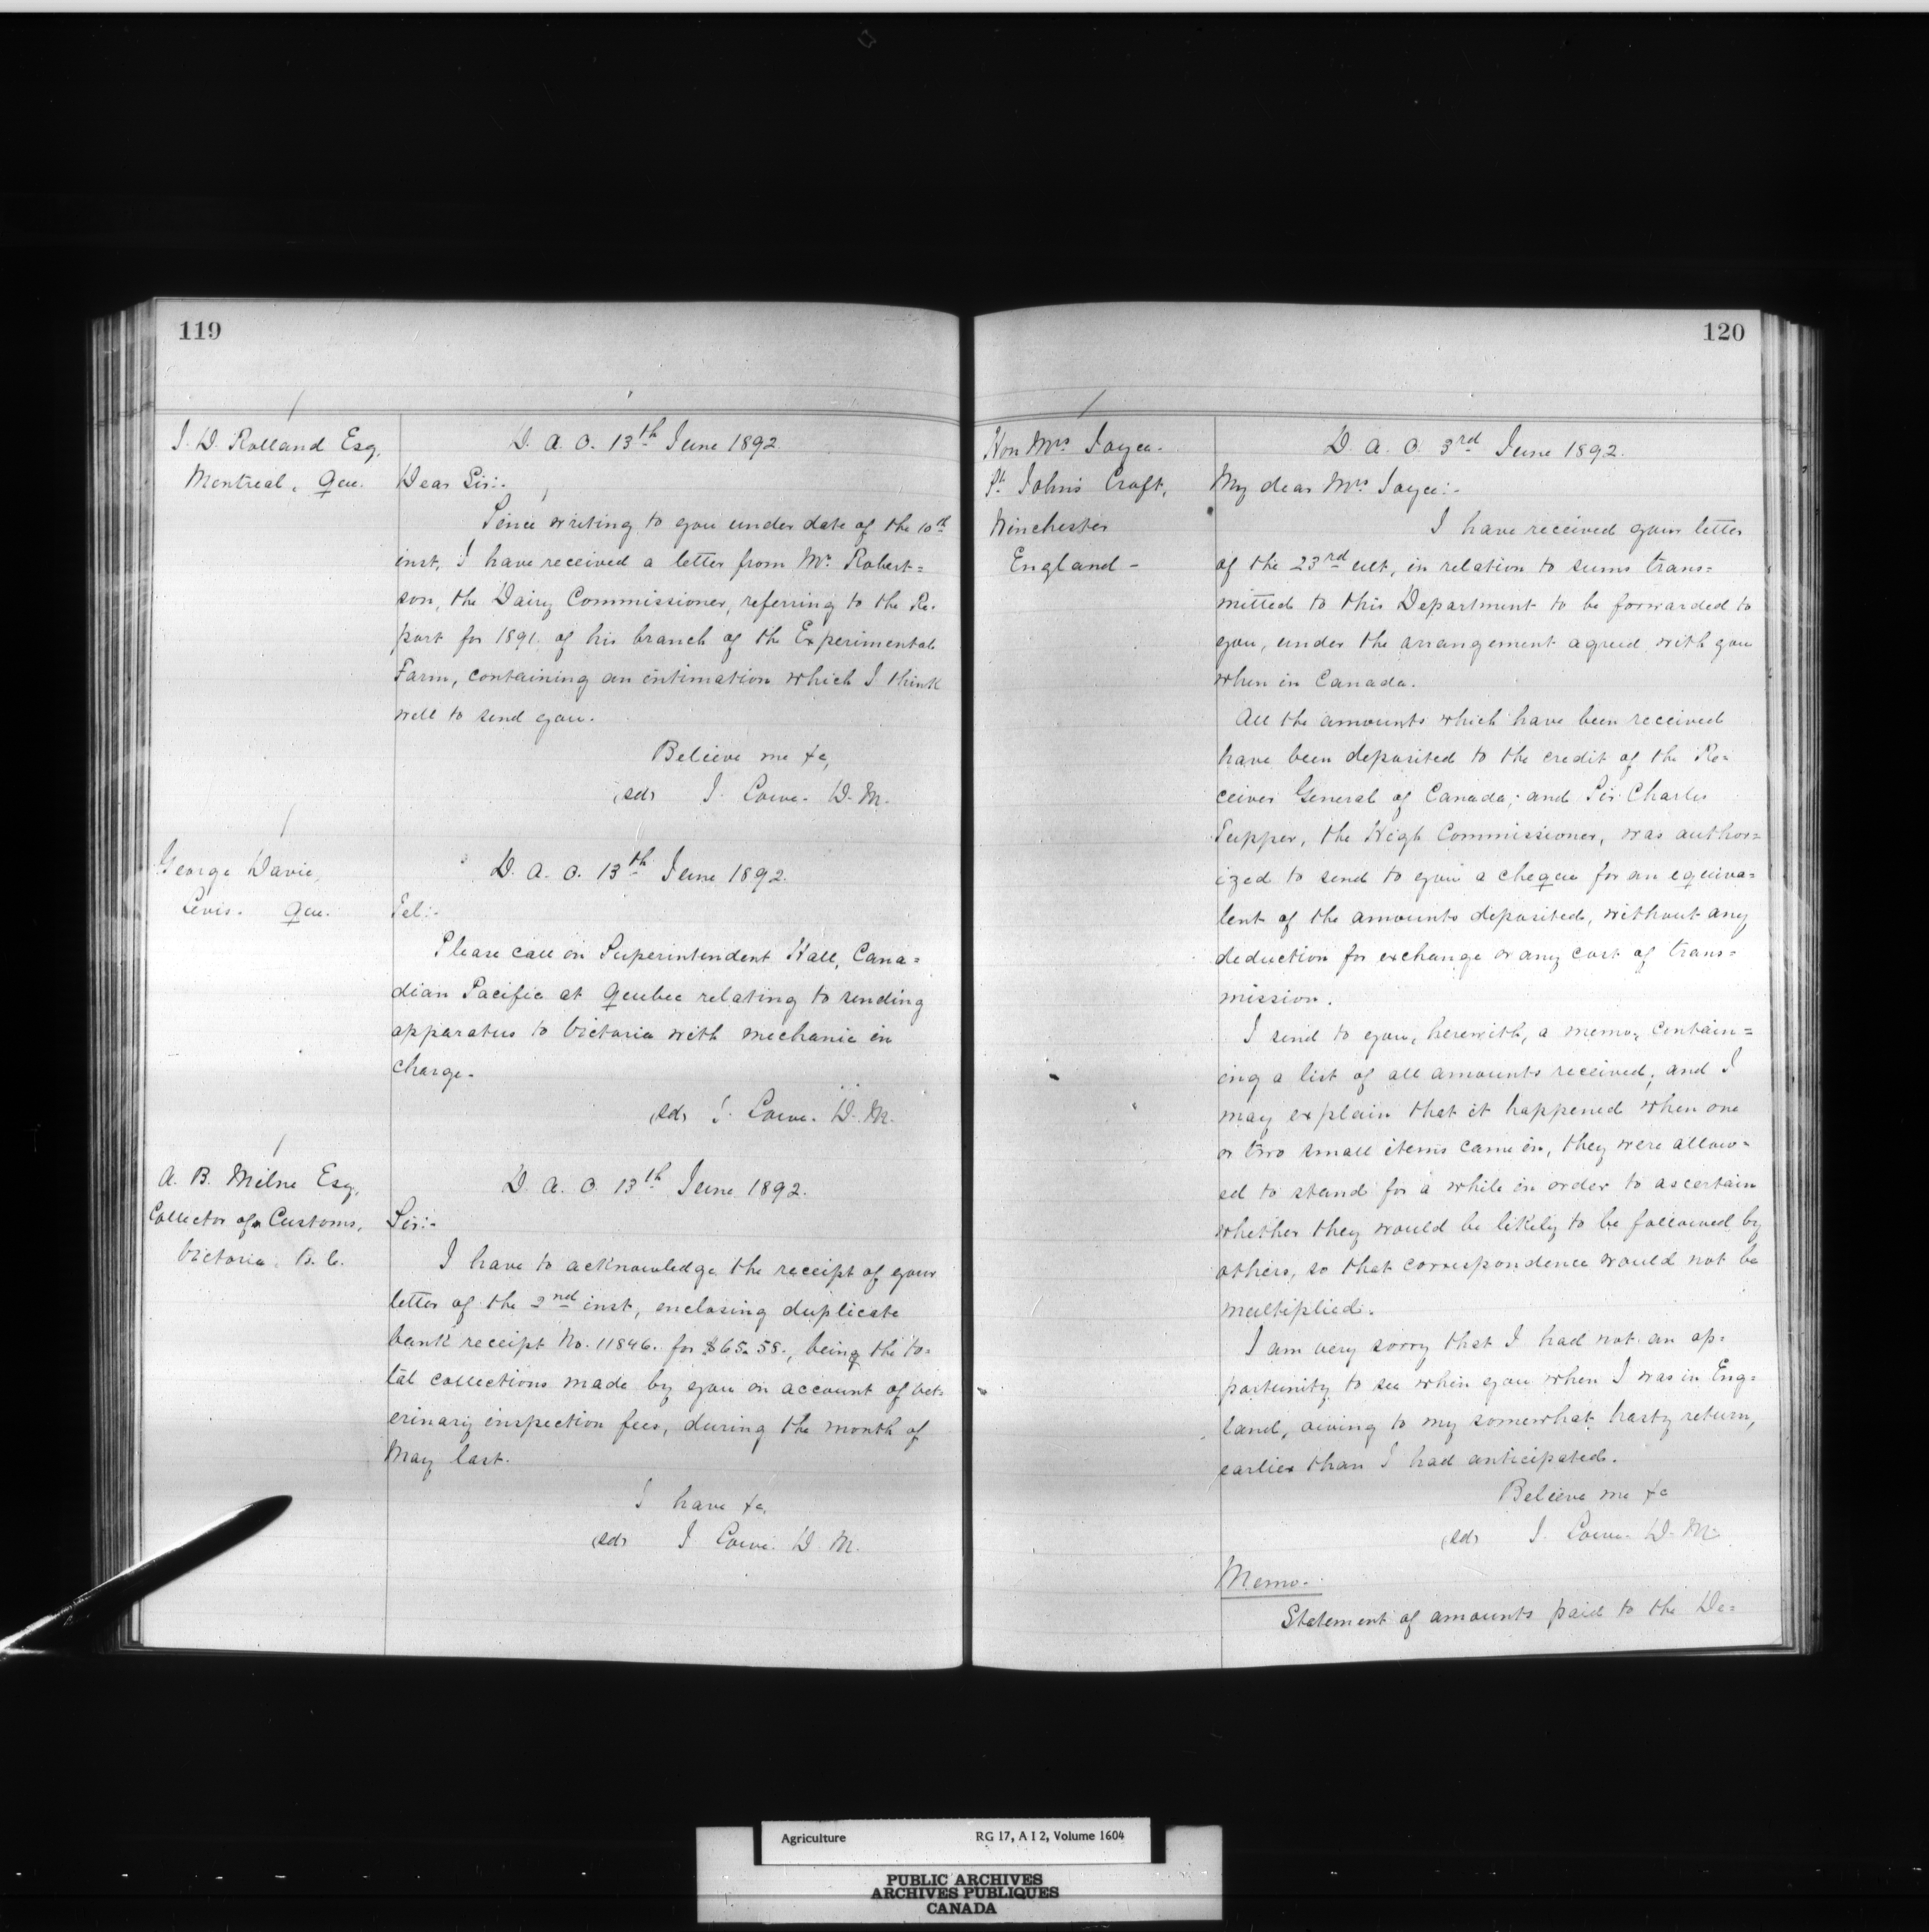 119
J. D. Rolland Esq.
Montreal, Que.
D. A. O. 13th June 1892.
Dear Sir:-
Since writing to you under date of the 10th
inst, I have received a letter from Mr. Robert=
son, the Dairy Commissioner, referring to the Re-
port for 1891. of his branch of the Experimental
Farm, containing an intimation which I think
well to send you.
Believe me &c,
(sd) J. Lowe. D. M.
George Davie,
Levis. Que.
D. A. O. 13th June 1892.
Tel:-
Please call on Superintendent Hall, Cana=
dian Pacific at Quebec relating to sending
apparatus to Victoria with mechanic in
charge.
(sd) J. Lowe. D. M.
A. B. Milne Esq.
Collector of Customs,
Victoria. B. C.
D. A. O. 13th June 1892.
Sir:-
I have to acknowledge the receipt of your
letter of the 2nd inst, enclosing duplicate
bank receipt No. 11846. for $65.58., being the to=
tal collections made by you on account of vet-
erinary inspection fees, during the month of
May last.
I have &c,
(sd) J Lowe. D M.
120
Hon Mrs Joyce.
St. John's Croft,
Winchester
England -
D. A. O. 3rd June 1892.
My dear Mrs Joyce:-
I have received your letter
of the 23rd ult, in relation to sums trans=
mitted to this Department to be forwarded to
you, under the arrangement agreed with you
when in Canada.
All the amounts which have been received
have been deposited to the credit of the Re-
ceiver General of Canada; and Sir Charles
Tupper, the High Commissioner, was author=
ized to send to you a cheque for an equiva=
lent of the amounts deposited, without any
deduction for exchange or any cost of trans=
mission.
I send to you, herewith, a memo, contain=
ing a list of all amounts received; and I
may explain that it happened when one
or two small items came in, they were allow=
ed to stand for a while in order to ascertain
whether they would be likely to be followed by
others, so that correspondence would not be
multiplied.
I am very sorry that I had not an op-
portunity to see when you when I was in Eng=
land, owing to my somewhat hasty return,
earlier than I had anticipated.
Believe me &c
(sd) J. Lowe. D. M.
Memo.
Statement of amounts paid to the De=
Agriculture RG 17, A I 2, Volume 1604
PUBLIC ARCHIVES
ARCHIVES PUBLIQUES
CANADA